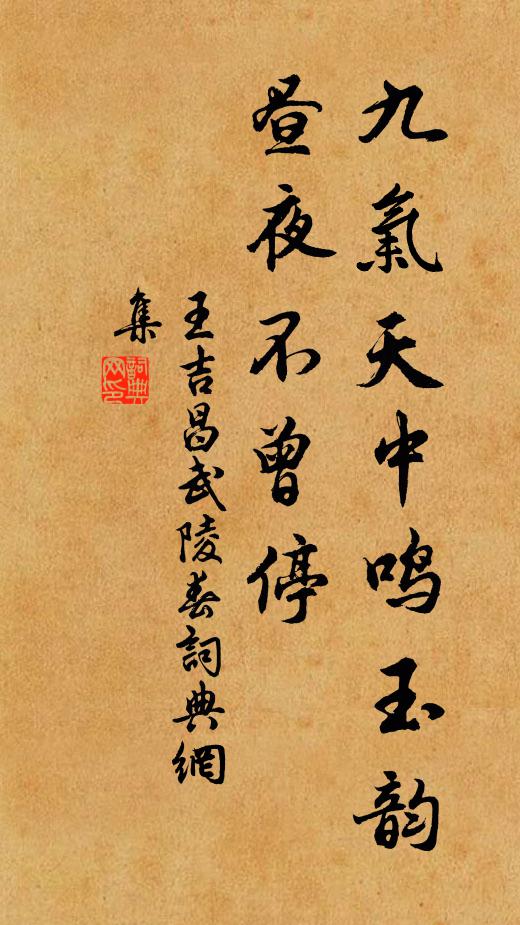 九氣天中鳴玉韵
昼夜不曾停
王吉昌武陵春詞典網
集
詞典网印